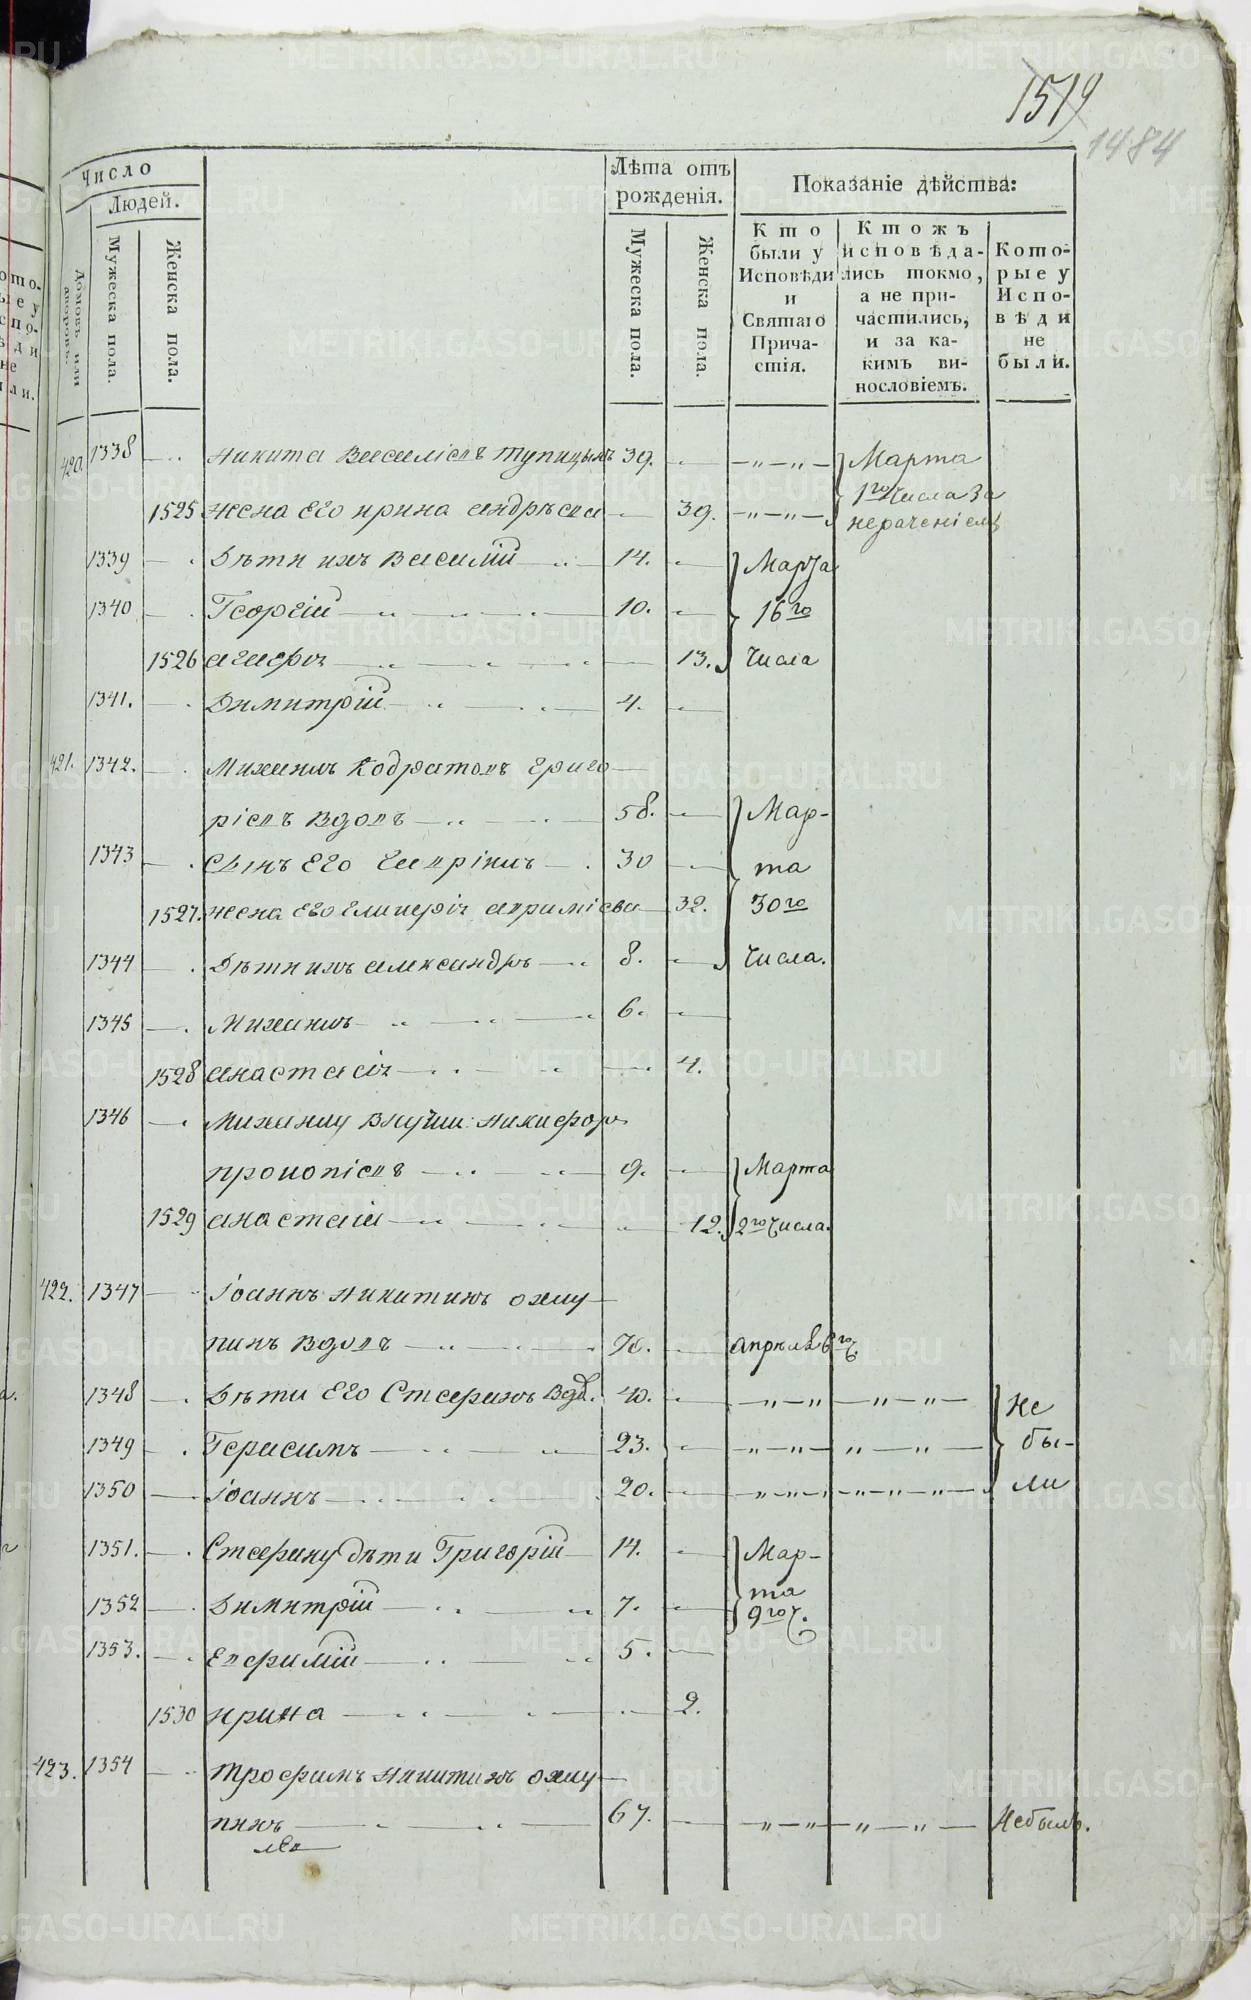 1519
1484
Число
Людей.
Домовъ или дворовъ.
Мужеска пола.
Женска пола.
Лѣта отъ рожденія.
Мужеска пола.
Женска пола.
Показаніе дѣйства:
Кто были у Исповѣди и Святаго Причастія.
Ктожъ исповѣдались токмо, а не причастились, и за какимъ винословіемъ.
Которые у Исповѣди не были.
420 1338 Никита Василіевъ Тупицынъ 39. Марта
1го числа за
1525 жена Его Ирина Андрѣева 39. нераченіемъ
1339 Дѣти ихъ Василій 14. Марта
1340 Георгій 10. 16го
1526 Агафія 13. числа
1341. Димитрій 4.
421. 1342. Михаилъ Кодратовъ Григо
ріевъ Вдовъ 58. Мар-
1343 Сынъ Его Гавріилъ 30 та
1527. жена Его Гликерія 32. 30го
1344 Дѣти ихъ Александръ 8. числа.
1345 Михаилъ 6.
1528 Анастасія 4.
1346 Михаилу Внучки Никифоръ
Прокопіевъ 9. Марта
1529 Анастасія 12. 2го числа.
422. 1347 Іоаннъ Никитинъ Охлу
пинъ Вдовъ 70. Апрѣля 6го ч.
1348 Дѣти Его Стефанъ Вдв. 40. не
1349 Герасимъ 23. бы-
1350 Іоаннъ 20. ли
1351. Стефану дѣти Григорій 14. Мар-
та
1352 Димитрій 7. 9го ч.
1353. Евфимій 5.
1530 Ирина 2.
423. 1354 Трофимъ Никитинъ Охлу
пинъ 67. Небылъ.
METRIKI.GASO-URAL.RU